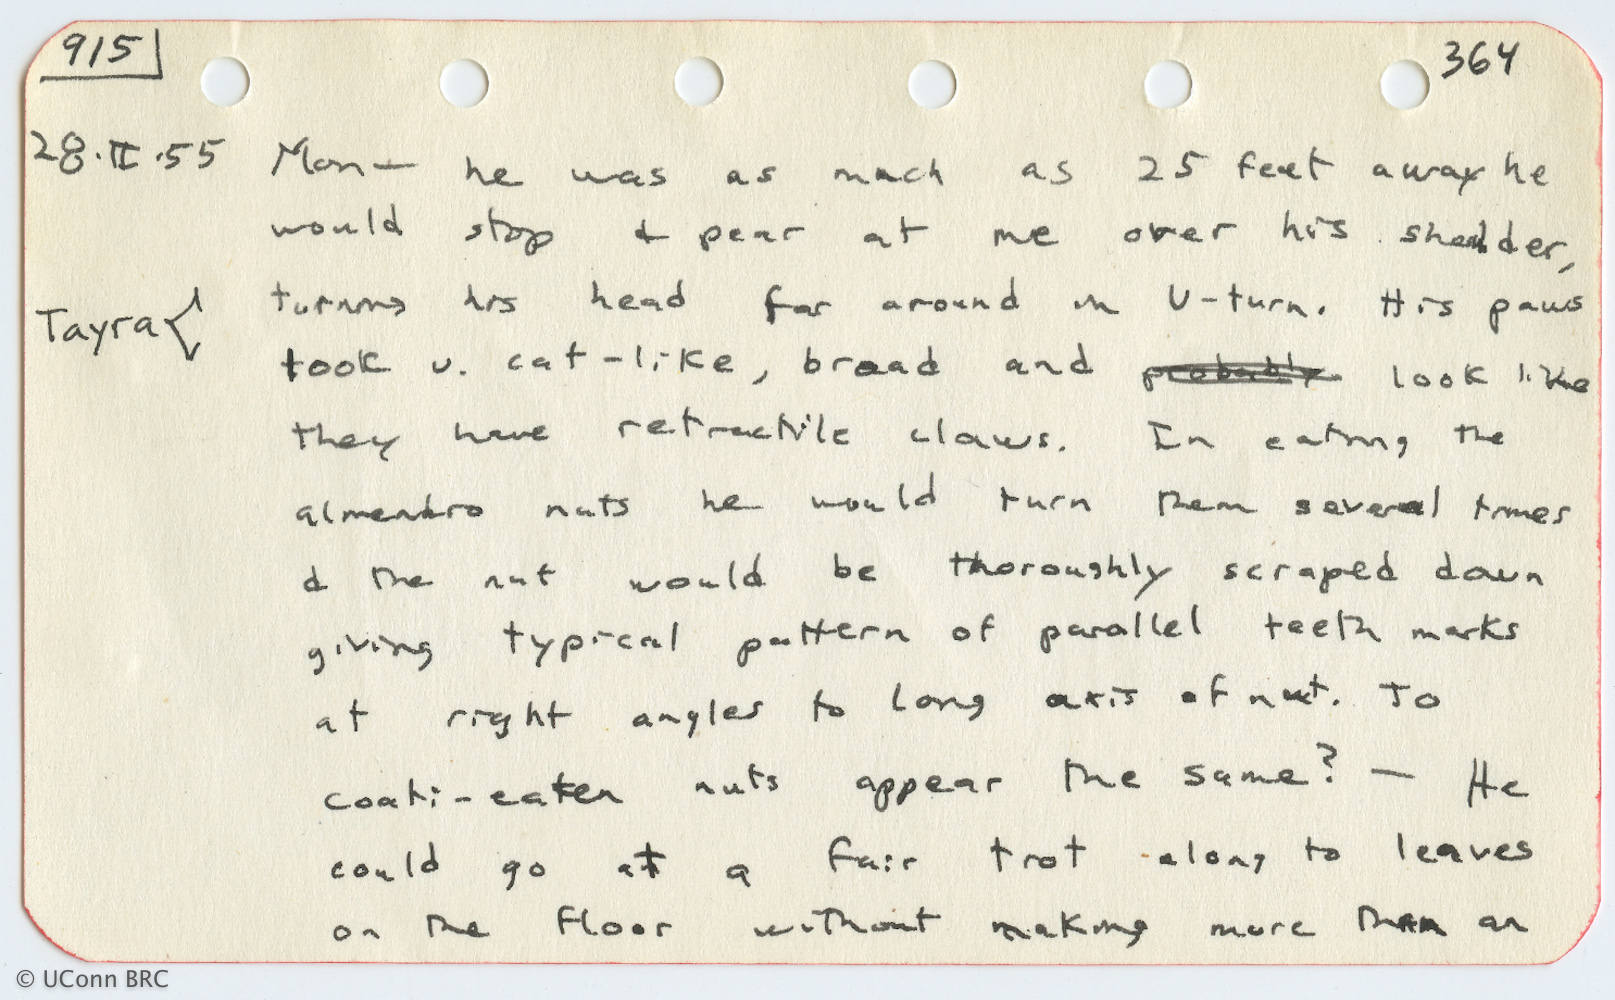 915
364
28.II.55 Mon— he was as much as 25 feet away he
would stop & pear at me over his shoulder,
Tayra turning his head far around in U-turn. His paws
took v. cat-like, broad and probably look like
they have retractile claws. In eating the
almendro nuts he would turn them several times
& the nut would be thoroughly scraped down
giving typical pattern of parallel teeth marks
at right angles to long axis of nut. To
coati-eaten nuts appear the same? — He
could go at a fair trot along to leaves
on the floor without making more than an
© UConn BRC